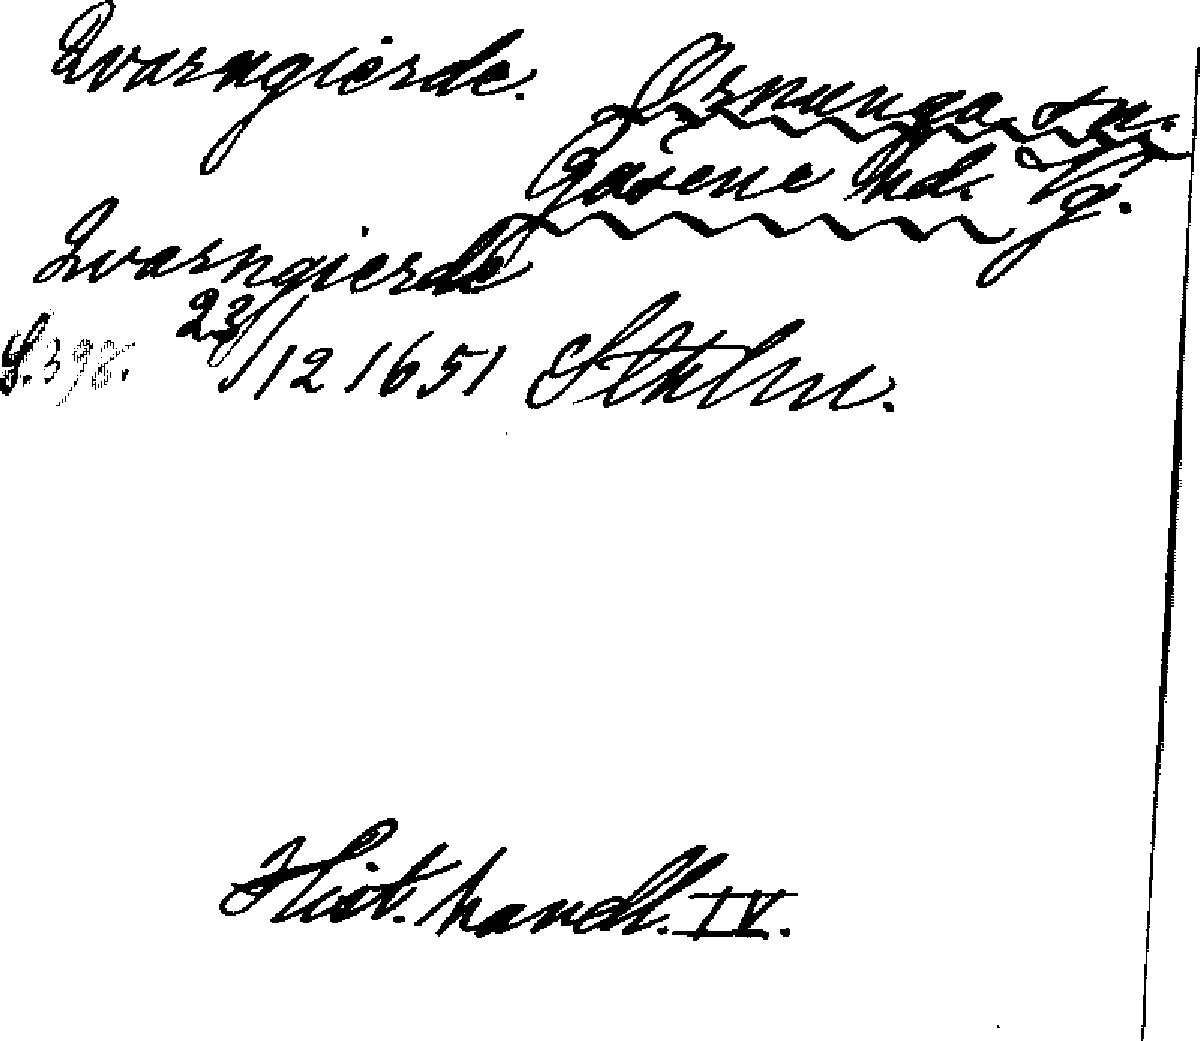 Qvarngierde. Ornunga sn.
Gäsene hd. Vg.
Qvarngierde
S. 398. 23/12 1651 Sthlm.
Hist. handl. IV.